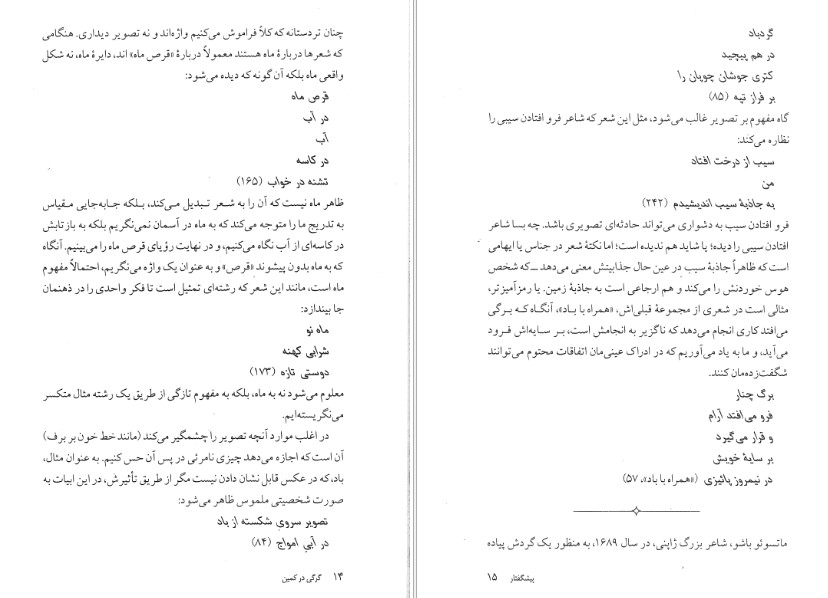 چنان تردستانه که کلاً فراموش می‌کنیم واژه‌اند و نه تصویر دیداری. هنگامی
که شعرها دربارهٔ ماه هستند معمولاً دربارهٔ «قرص ماه» اند، دایرهٔ ماه، نه شکل
واقعی ماه بلکه آن گونه که دیده می‌شود:
قرص ماه
در آب
آب
در کاسه
تشنه در خواب (۱۶۵)
ظاهر ماه نیست که آن را به شعر تبدیل می‌کند، بلکه جابه‌جایی مقیاس
به تدریج ما را متوجه می‌کند که به ماه در آسمان نمی‌نگریم بلکه به بازتابش
در کاسه‌ای از آب نگاه می‌کنیم، و در نهایت رؤیای قرص ماه را می‌بینیم. آنگاه
که به ماه بدون پیشوند «قرص» و به عنوان یک واژه می‌نگریم، احتمالاً مفهوم
ماه است، مانند این شعر که رشته‌ای تمثیل است تا فکر واحدی را در ذهنمان
جا بیندازد:
ماه نو
شرابی کهنه
دوستی تازه (۱۷۳)
معلوم می‌شود نه به ماه، بلکه به مفهوم تازگی از طریق یک رشته مثال متکسر
می‌نگریسته‌ایم.
در اغلب موارد آنچه تصویر را چشمگیر می‌کند (مانند خط خون بر برف)
آن است که اجازه می‌دهد چیزی نامرئی در پس آن حس کنیم. به عنوان مثال،
باد، که در عکس قابل نشان دادن نیست مگر از طریق تأثیرش، در این ابیات به
صورت شخصیتی ملموس ظاهر می‌شود:
تصویر سروی شکسته از باد
در آبی امواج (۸۴)
۱۴ گرگی در کمین
گردباد
در هم پیچید
کتری جوشان چوپان را
بر فراز تپه (۸۵)
گاه مفهوم بر تصویر غالب می‌شود، مثل این شعر که شاعر فرو افتادن سیبی را
نظاره می‌کند:
سیب از درخت افتاد
من
به جاذبهٔ سیب اندیشیدم (۲۴۲)
فرو افتادن سیب به دشواری می‌تواند حادثه‌ای تصویری باشد. چه بسا شاعر
افتادن سیبی را دیده؛ یا شاید هم ندیده است؛ اما نکتهٔ شعر در جناس یا ایهامی
است که ظاهراً جاذبهٔ سیب در عین حال جذابیتش معنی می‌دهد ــ که شخص
هوس خوردنش را می‌کند و هم ارجاعی است به جاذبهٔ زمین. یا رمزآمیزتر،
مثالی است در شعری از مجموعهٔ قبلی‌اش، «همراه با باد»، آنگاه که برگی
می‌افتد کاری انجام می‌دهد که ناگزیر به انجامش است، بر سایه‌اش فرود
می‌آید، و ما به یاد می‌آوریم که در ادراک عینی‌مان اتفاقات محتوم می‌توانند
شگفت‌زده‌مان کنند.
برگ چنار
فرو می‌افتد آرام
و قرار می‌گیرد
بر سایهٔ خویش
در نیمروز پائیزی («همراه با باد»، ۵۷)
ماتسوئو باشو، شاعر بزرگ ژاپنی، در سال ۱۶۸۹، به منظور یک گردش پیاده
پیشگفتار ۱۵